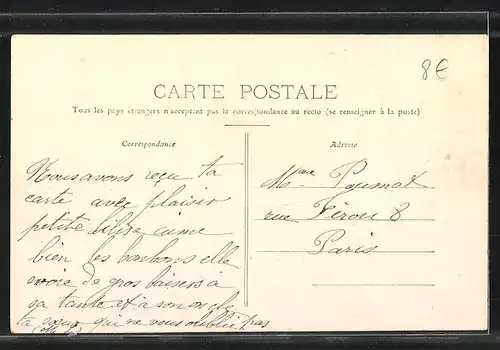 8€
CARTE POSTALE
Tous les pays étrangers n'acceptent pas la correspondance au recto (se renseigner à la poste)
Correspondance
Nous avons reçu ta
carte avec plaisir
petite lilise aime
bien les bonbons elle
envoie de gros baisers à
sa tante et à son oncle
ta sœur qui ne vous oublie pas
Adresse
Mme Poumat
rue Férou 8
Paris